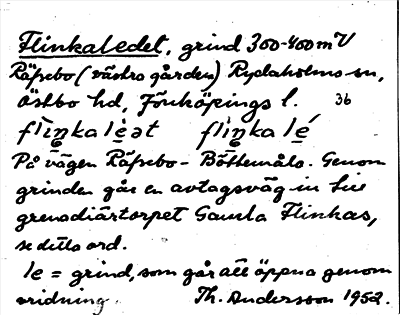 Flinkaledet, grind 300-400 m V
Räfsebo (västra gården) Rydaholms sn,
Östbo hd, Jönköpings l. 36
flìŋkalèət flìŋka lé
På vägen Räfsebo - Böttemåla. Genom
grinden går en avtagsväg in till
grenadiärtorpet Gamla Flinkas,
se detta ord.
le = grind, som går att öppna genom
vridning. Th. Andersson 1952.